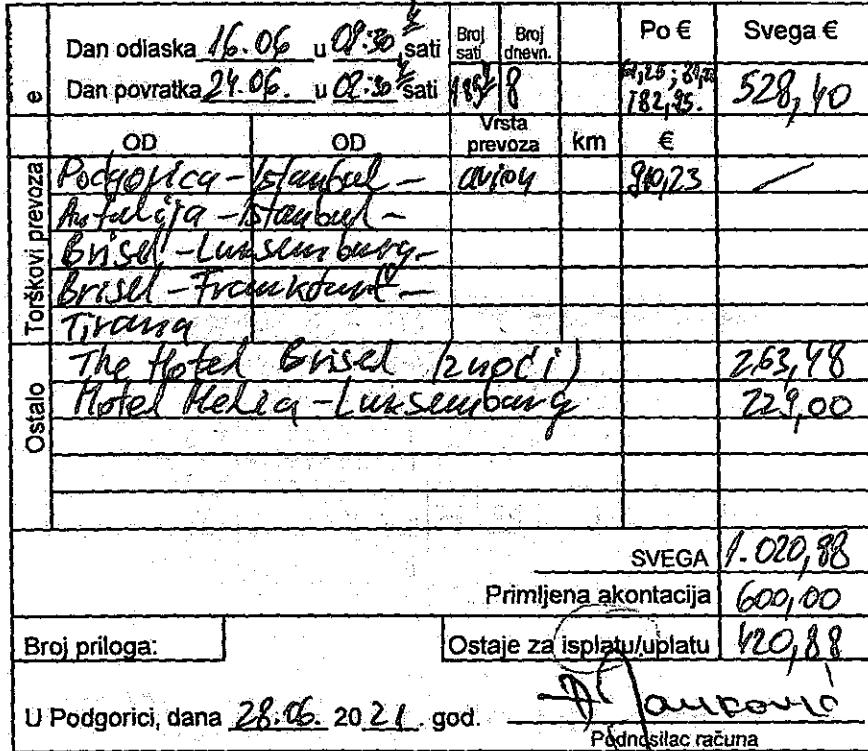 Dan odlaska 16.06 u 08:30 sati Broj sati Broj dnevn. Po € Svega €
Dan povratka 24.06. u 02:30 sati 185 8 182,95. 528,40
e
OD OD Vrsta prevoza km €
Torškovi prevoza
Podgorica - Istanbul - avion 910,23 /
Antalija - Istanbul -
Brisel - Luksemburg -
Brisel - Frankfurt -
Tirana
Ostalo
The Hotel Brisel (2 noći) 263,48
Hotel Melia - Luksemburg 229,00
SVEGA 1.020,88
Primljena akontacija 600,00
Broj priloga: Ostaje za isplatu/uplatu 420,88
U Podgorici, dana 28.06. 2021 god. Janković
Podnosilac računa